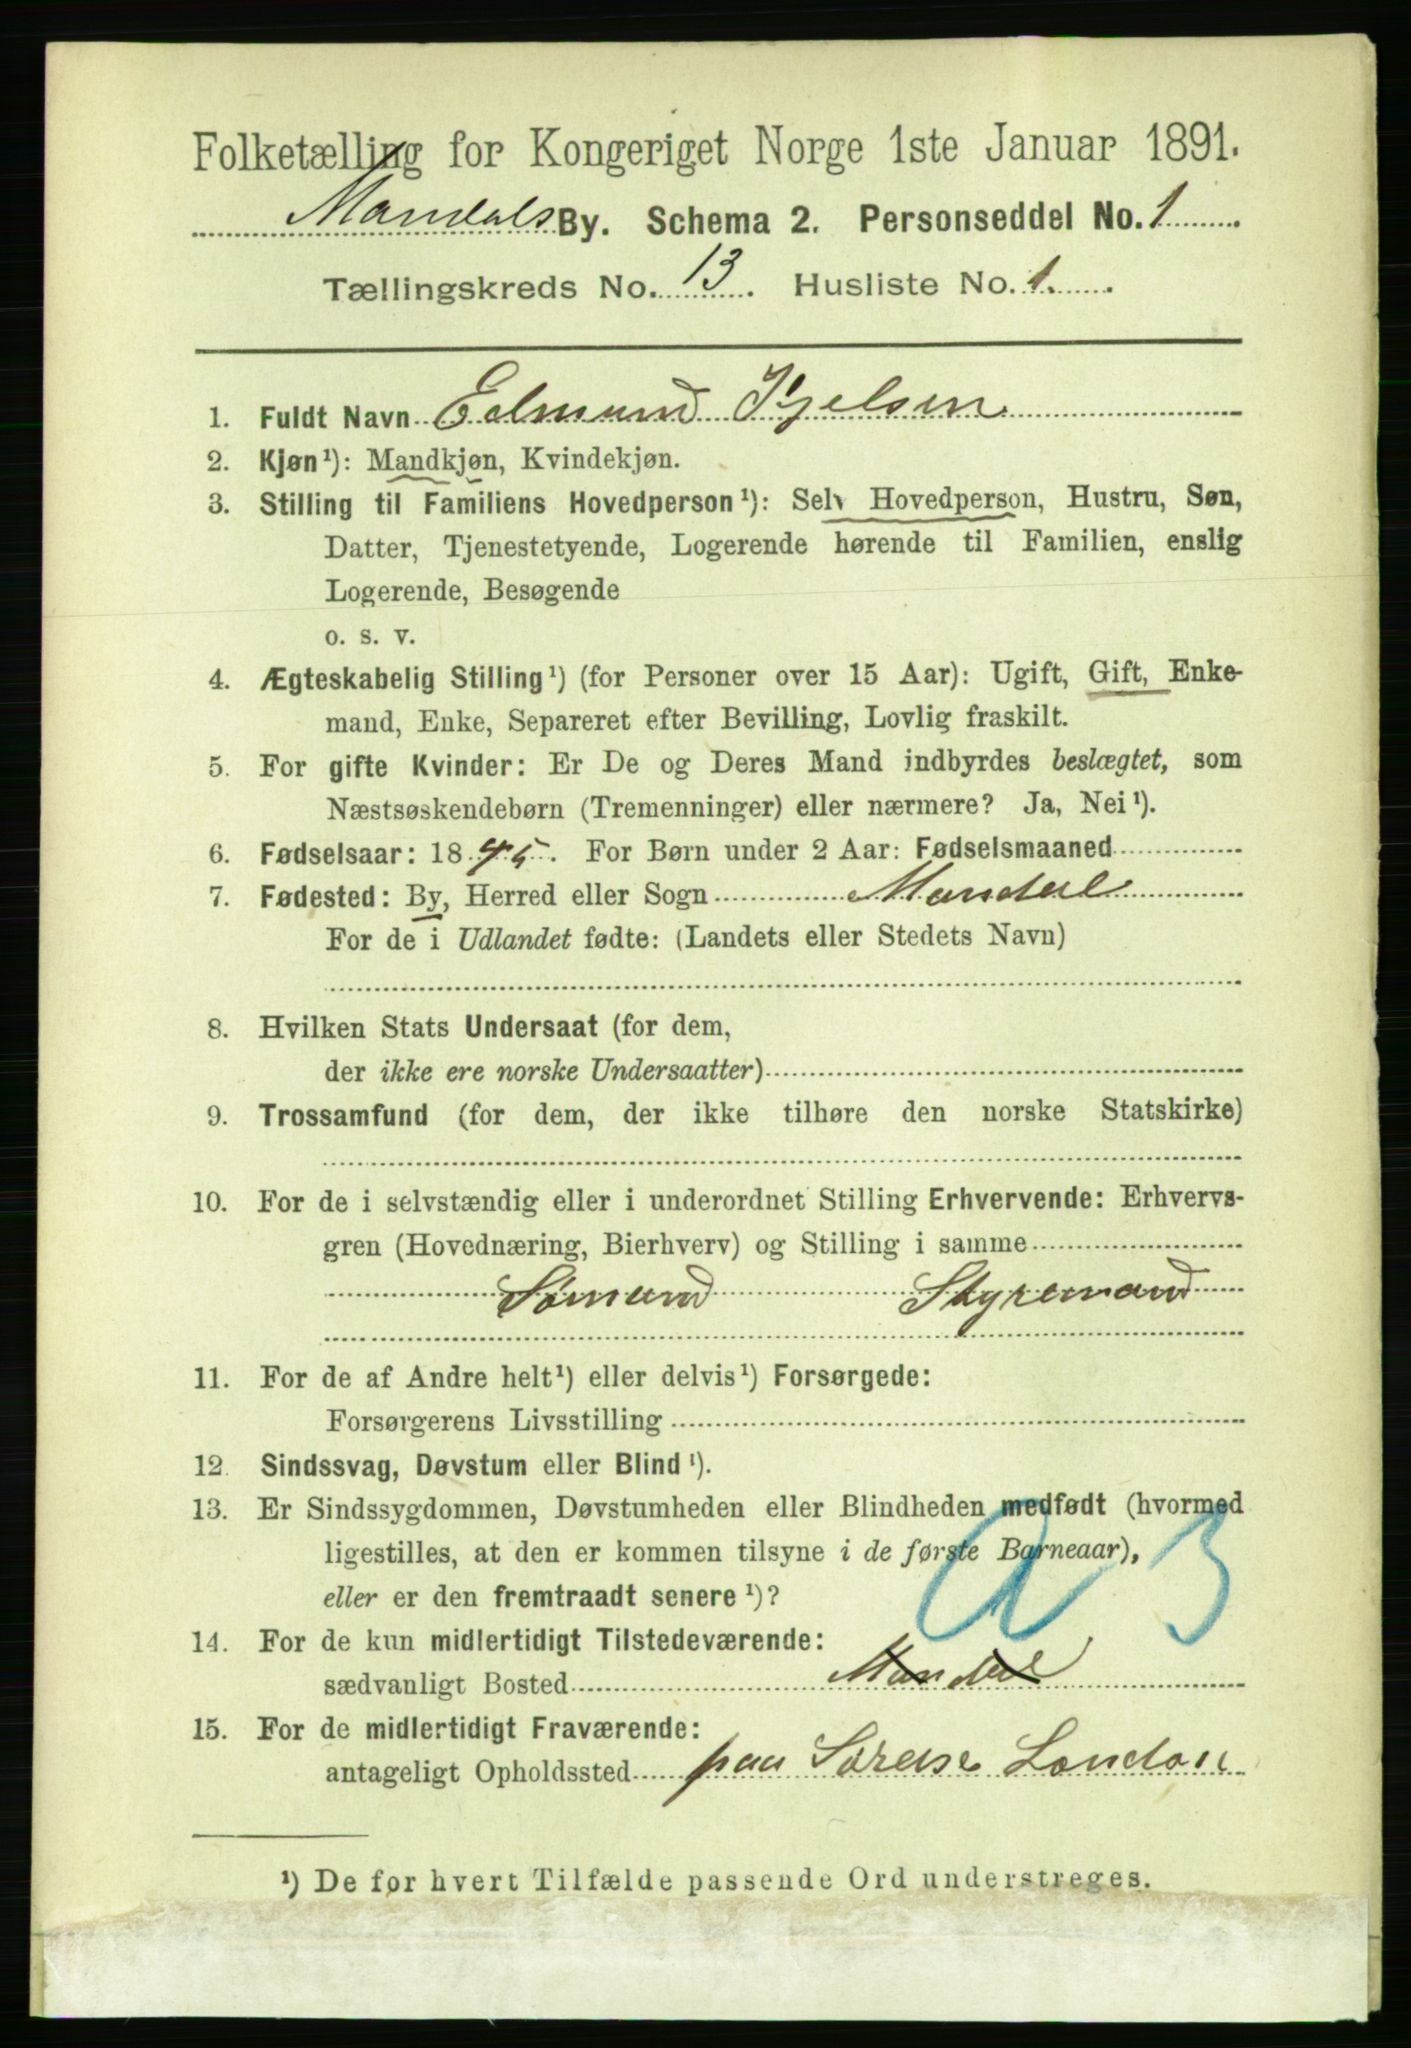 Folketælling for Kongeriget Norge 1ste Januar 1891.
Mandals By. Schema 2. Personseddel No. 1
Tællingskreds No. 13. Husliste No. 1.
1. Fuldt Navn Edmund Kjelsen
2. Kjøn¹): Mandkjøn, Kvindekjøn.
3. Stilling til Familiens Hovedperson¹): Selv Hovedperson, Hustru, Søn,
Datter, Tjenestetyende, Logerende hørende til Familien, enslig
Logerende, Besøgende
o. s. v.
4. Ægteskabelig Stilling¹) (for Personer over 15 Aar): Ugift, Gift, Enke-
mand, Enke, Separeret efter Bevilling, Lovlig fraskilt.
5. For gifte Kvinder: Er De og Deres Mand indbyrdes beslægtet, som
Næstsøskendebørn (Tremenninger) eller nærmere? Ja, Nei¹).
6. Fødselsaar: 1845. For Børn under 2 Aar: Fødselsmaaned
7. Fødested: By, Herred eller Sogn Mandal
For de i Udlandet fødte: (Landets eller Stedets Navn)
8. Hvilken Stats Undersaat (for dem,
der ikke ere norske Undersaatter)
9. Trossamfund (for dem, der ikke tilhøre den norske Statskirke)
10. For de i selvstændig eller i underordnet Stilling Erhvervende: Erhvervs-
gren (Hovednæring, Bierhverv) og Stilling i samme
Sømand Styremand
11. For de af Andre helt¹) eller delvis¹) Forsørgede:
Forsørgerens Livsstilling
12. Sindssvag, Døvstum eller Blind¹).
13. Er Sindssygdommen, Døvstumheden eller Blindheden medfødt (hvormed
ligestilles, at den er kommen tilsyne i de første Barneaar),
eller er den fremtraadt senere¹)?
14. For de kun midlertidigt Tilstedeværende:
sædvanligt Bosted Mandal
15. For de midlertidigt Fraværende:
antageligt Opholdssted paa Søreise London
¹) De for hvert Tilfælde passende Ord understreges.